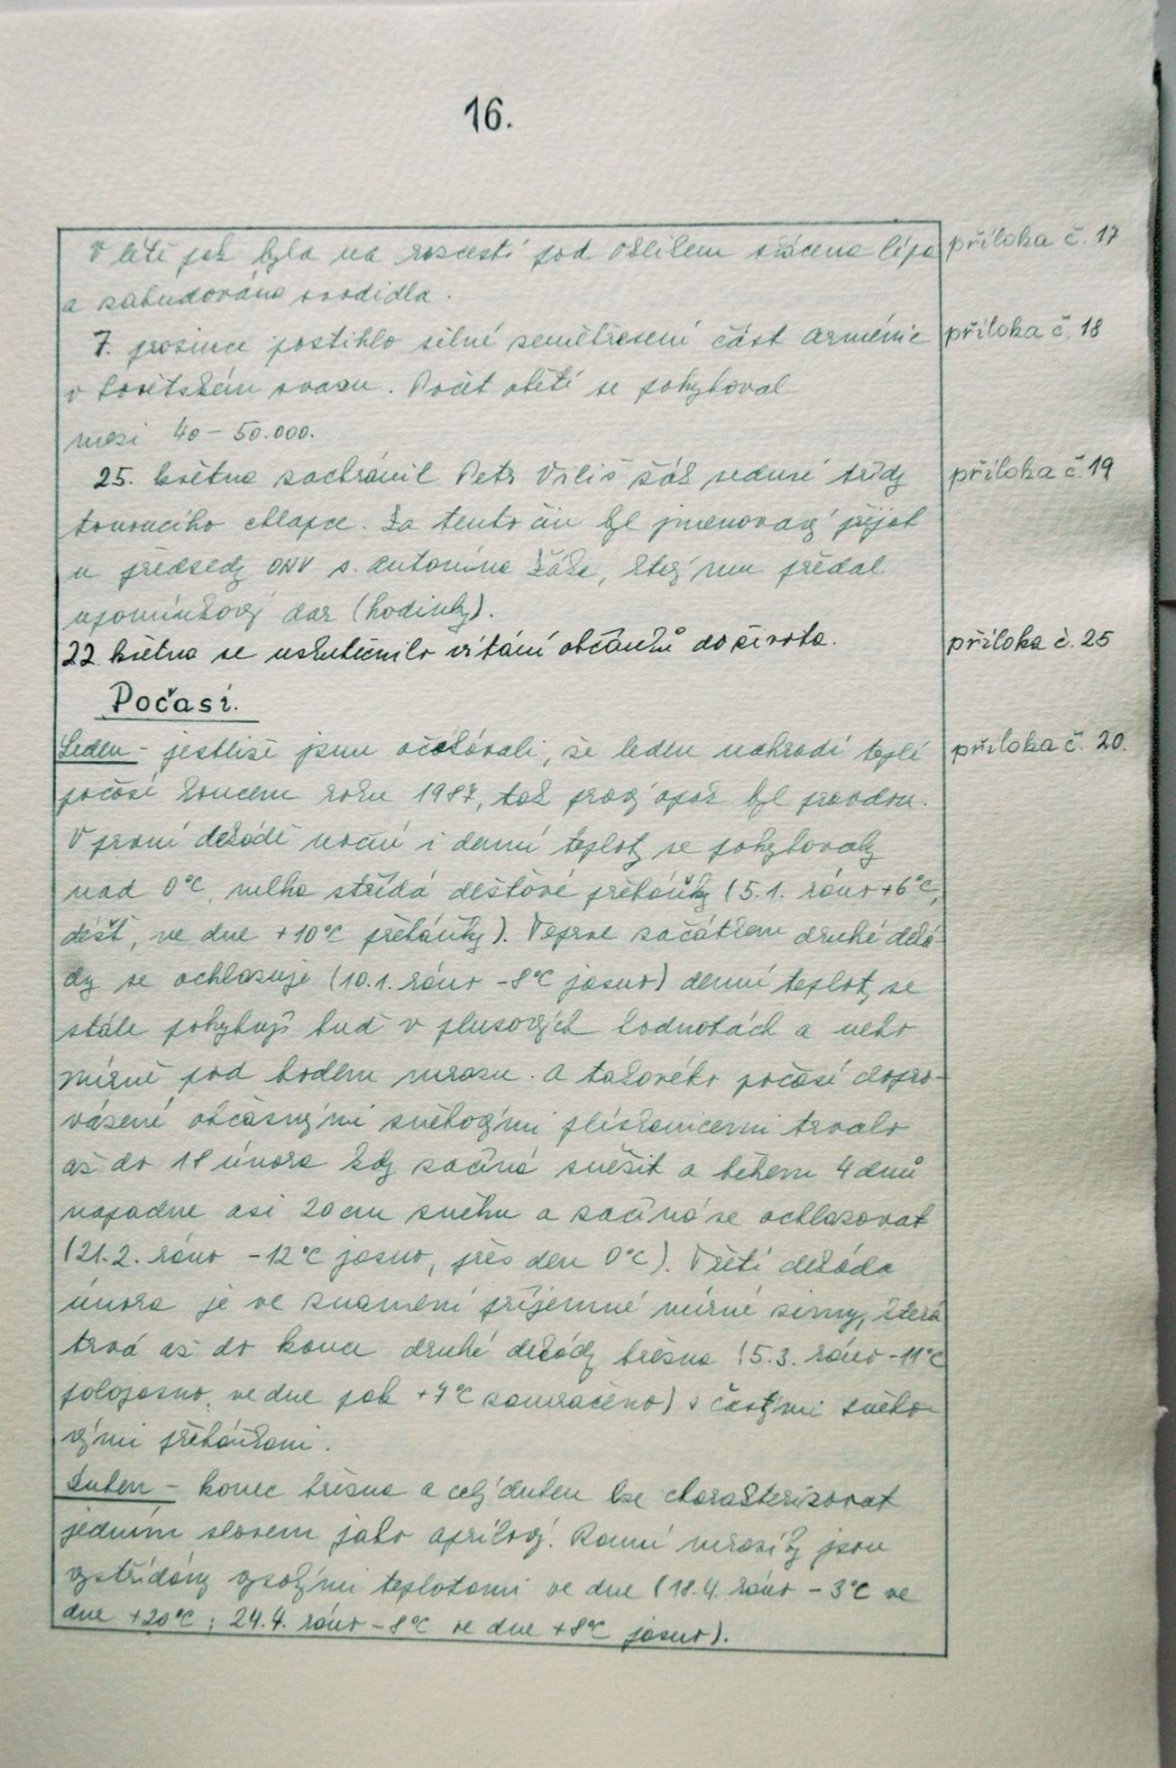 16.
V létě pak byla na rozcestí pod Oklikem skácena lípa příloha č. 17
a zabudována svodidla.
7. prosince postihlo silné zemětřesení část Arménie příloha č. 18
v Sovětském svazu. Počet obětí se pohyboval
mezi 40 – 50.000.
25. května zachránil Petr Viliš žák sedmé třídy příloha č. 19
tonoucího chlapce. Za tento čin byl jmenovaný přijat
u předsedy ONV s. Antonína Žáka, který mu předal
upomínkový dar (hodinky).
22. května se uskutečnilo vítání občánků do života. příloha č. 25
Počasí.
Leden – jestliže jsme očekávali, že leden nahradí teplé příloha č. 20.
počasí koncem roku 1987, tak pravý opak byl pravdou.
V první dekádě noční i denní teploty se pohybovaly
nad 0°C, mlha střídá dešťové přeháňky (5.1. ráno +6°C,
déšť, ve dne +10°C přeháňky). Teprve začátkem druhé deká-
dy se ochlazuje (10.1. ráno -8°C jasno) denní teploty se
stále pohybují buď v plusových hodnotách a nebo
mírně pod bodem mrazu. A takového počasí dopro-
vázené občasnými sněhovými plískanicemi trvalo
až do 18 února kdy začíná sněžit a během 4 dnů
napadne asi 20 cm sněhu a začíná se ochlazovat
(21.2. ráno -12°C jasno, přes den 0°C). Třetí dekáda
února je ve znamení příjemné mírné zimy, která
trvá až do konce druhé dekády března (5.3. ráno -11°C
polojasno, ve dne pak +4°C zamračeno) s častými sněho-
vými přeháňkami.
Duben – konec března a celý duben lze charakterizovat
jedním slovem jako aprílový. Ranní mrazíky jsou
vystřídány vysokými teplotami ve dne (18.4. ráno -3°C ve
dne +20°C; 24.4. ráno -8°C ve dne +8°C jasno).